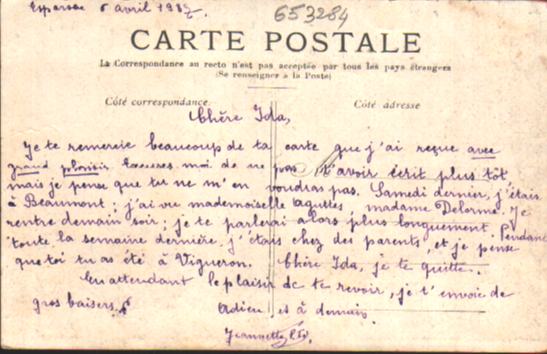 Esparsac 5 avril 1907.
653284
CARTE POSTALE
La Correspondance au recto n'est pas acceptée par tous les pays étrangers
(Se renseigner à la Poste)
Côté correspondance.
Côté adresse
Chère Ida,
Je te remercie beaucoup de ta carte que j'ai reçue avec
grand plaisir. Excuses-moi de ne pas t'avoir écrit plus tôt
mais je pense que tu ne m'en voudras pas. Samedi dernier, j'étais
à Beaumont; j'ai vu mademoiselle Laguttes madame Delorme. Je
rentre demain soir; je te parlerai alors plus longuement. Pendant
toute la semaine dernière, j'étais chez des parents, et je pense
que toi tu as été à Vigueron. Chère Ida, je te quitte.
En attendant le plaisir de te revoir, je t'envoie de
gros baisers.
Adieu et à demain.
Jeannette